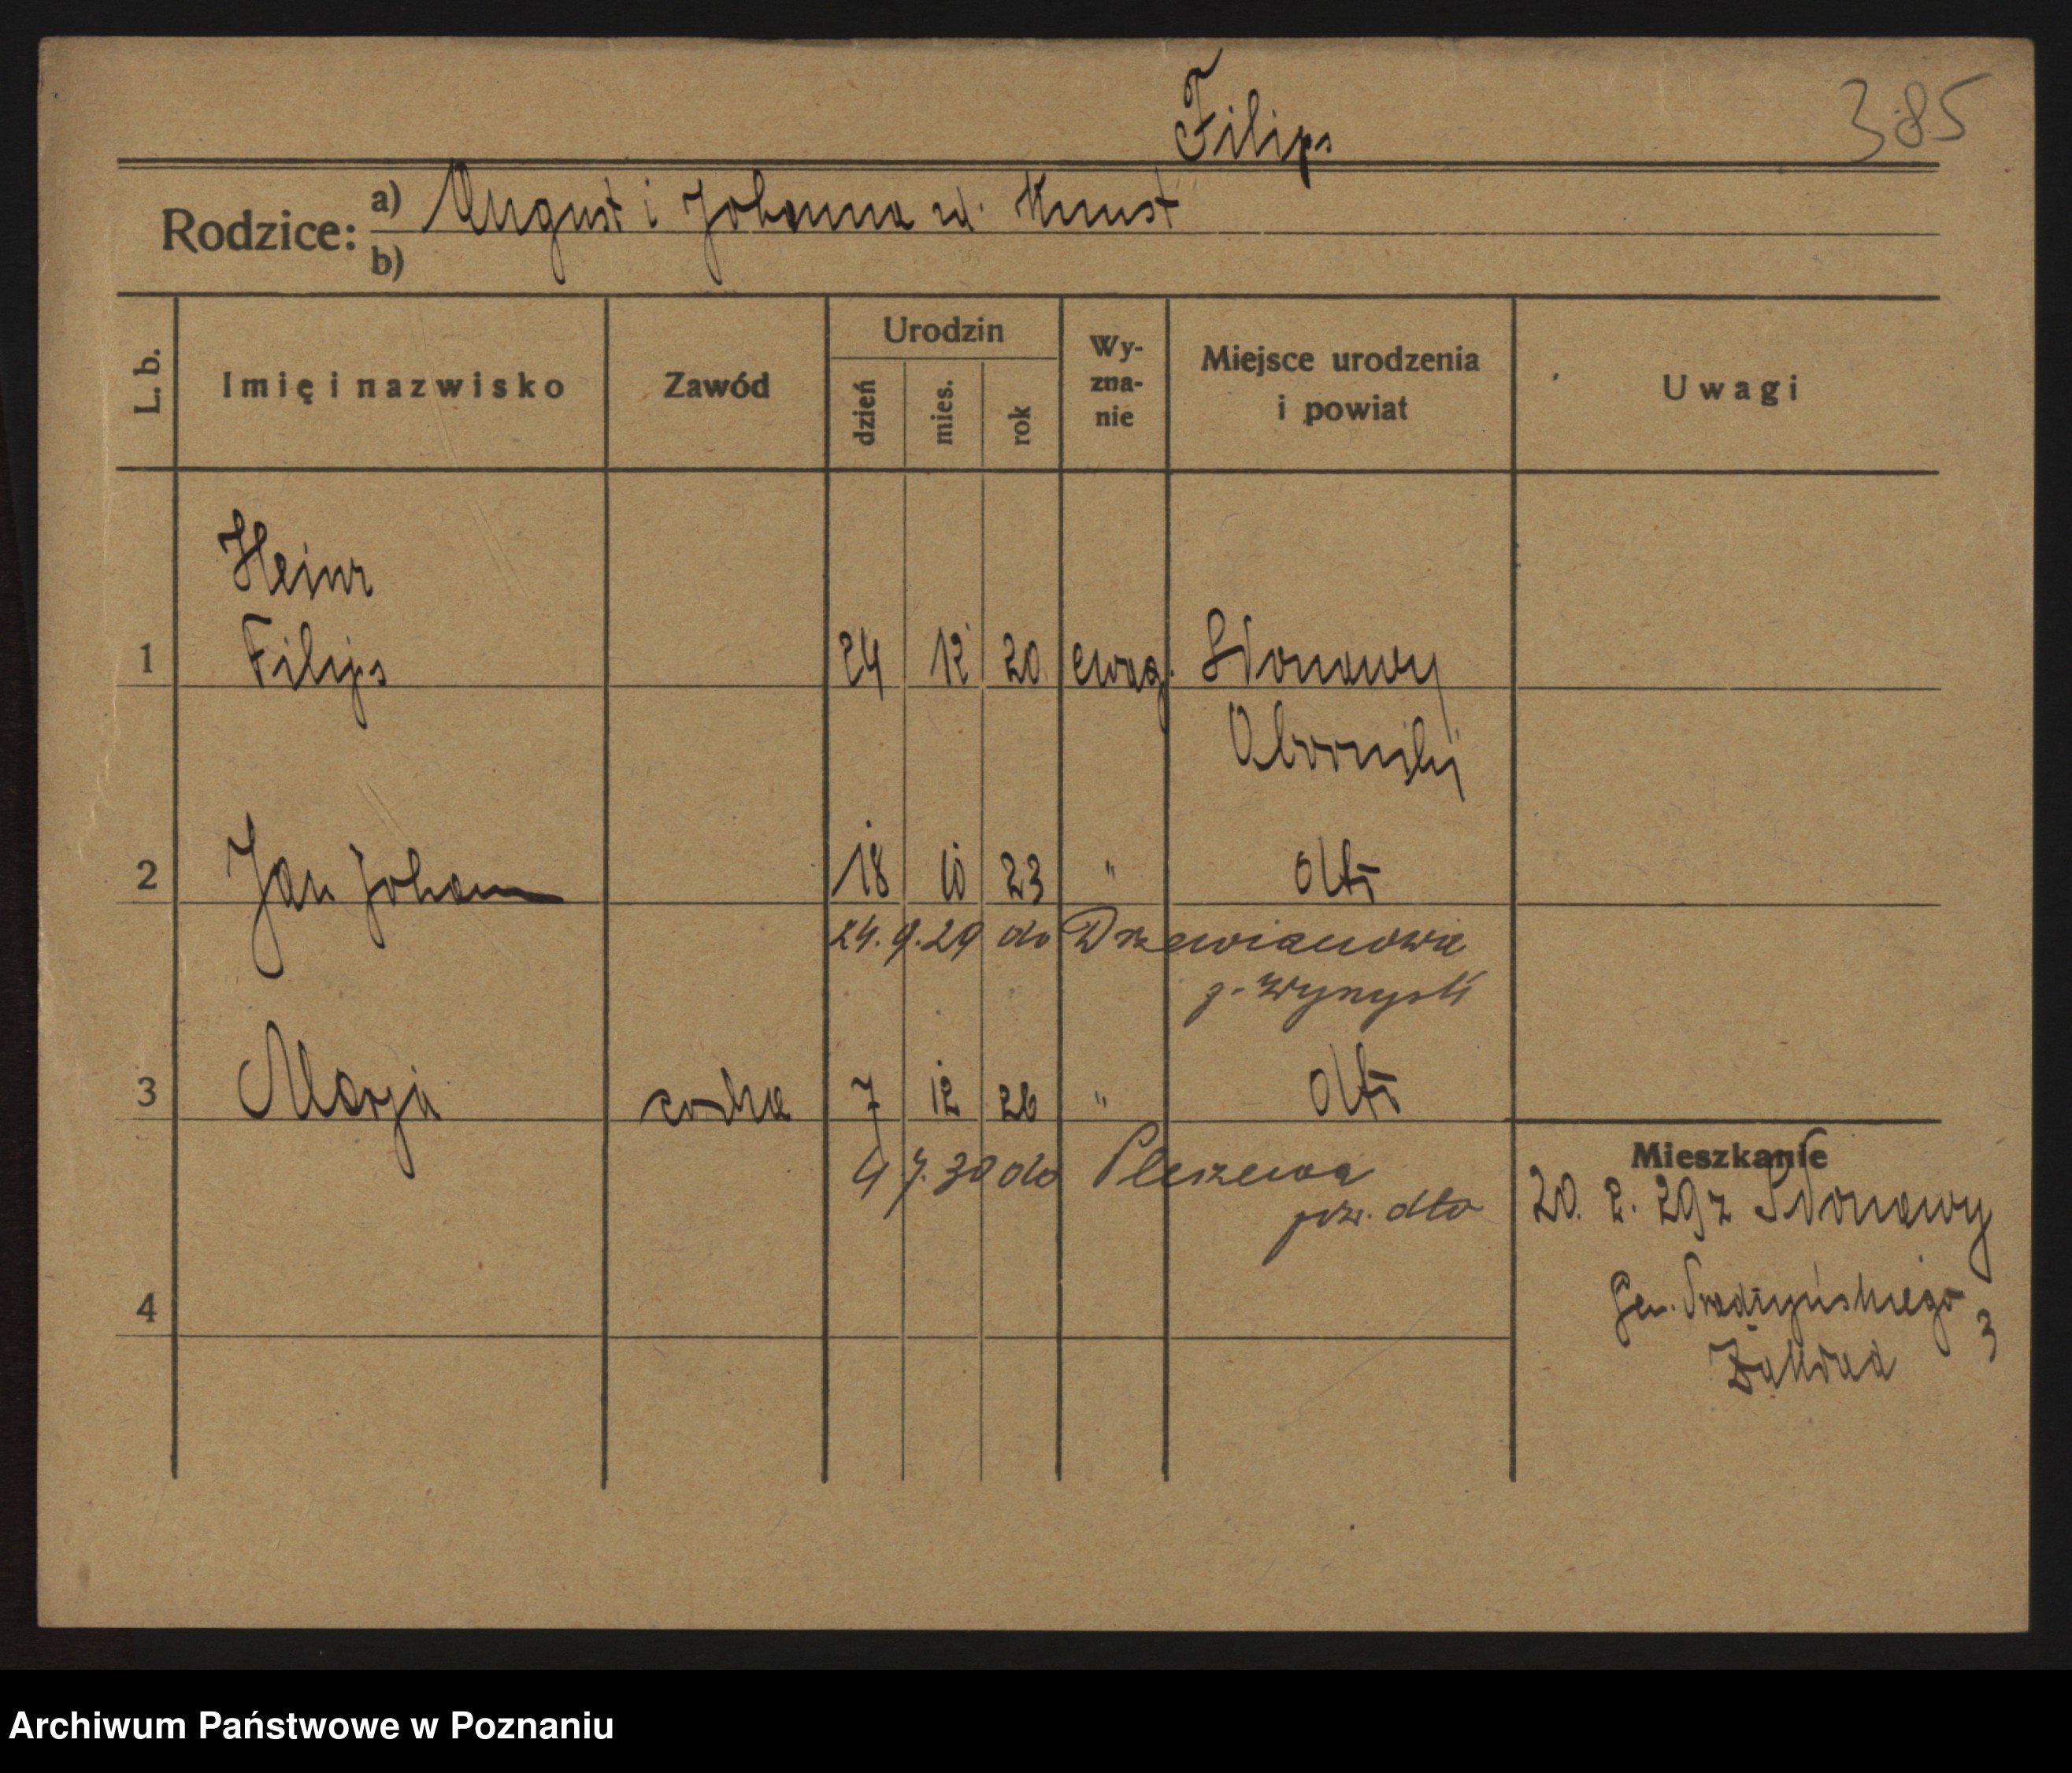 Filips
385
Rodzice:
a) August i Johanna ur. Knust
b)
L. b.
Imię i nazwisko
Zawód
Urodzin
dzień
mies.
rok
Wy-
zna-
nie
Miejsce urodzenia
i powiat
Uwagi
Heinr
1 Filips 24 12 20 ewag. Słonawy
Oborniki
2 Jan Johann 18 10 23 " dto
24. 9. 29 do Drzewianowa
p. Wyrzysk
3 Marja córka 7 12 26 " dto
4 7. 30 do Pleszewa
pow. dto
4
Mieszkanie
20. 2. 29 z Słonawy
Gen. Prądzyńskiego
3
Zakład
Archiwum Państwowe w Poznaniu